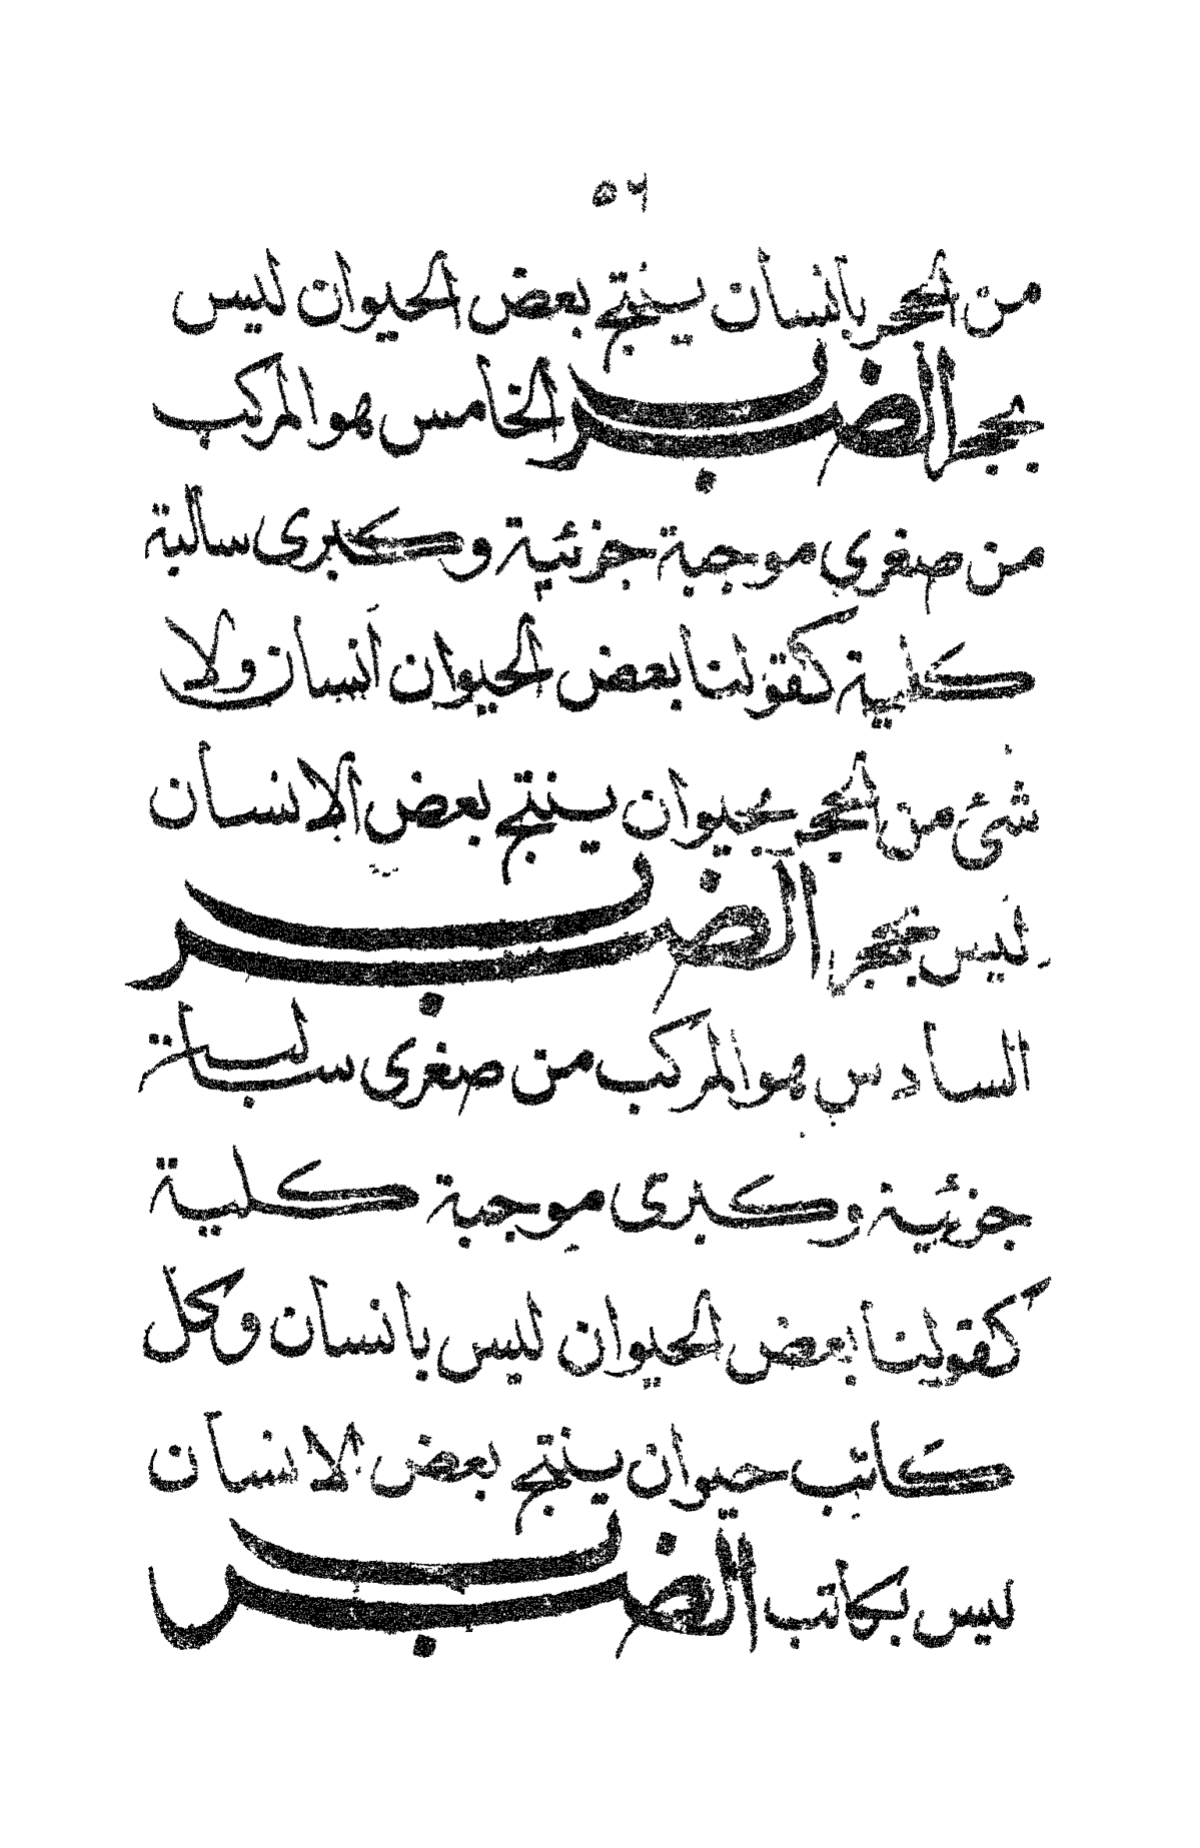 ٥٦
من الحجر بانسان ينتج بعض الحيوان ليس
بحجر الضرب الخامس هو المركب
من صغري موجبة جزئية وكبرى سالبة
كلية كقولنا بعض الحيوان انسان ولا
شئ من الحجر بحيوان ينتج بعض الانسان
ليس بحجر الضرب
السادس هو المركب من صغرى سالبة
جزئية وكبرى موجبة كلية
كقولنا بعض الحيوان ليس بانسان وكل
كاتب حيوان ينتج بعض الانسان
ليس بكاتب الضرب